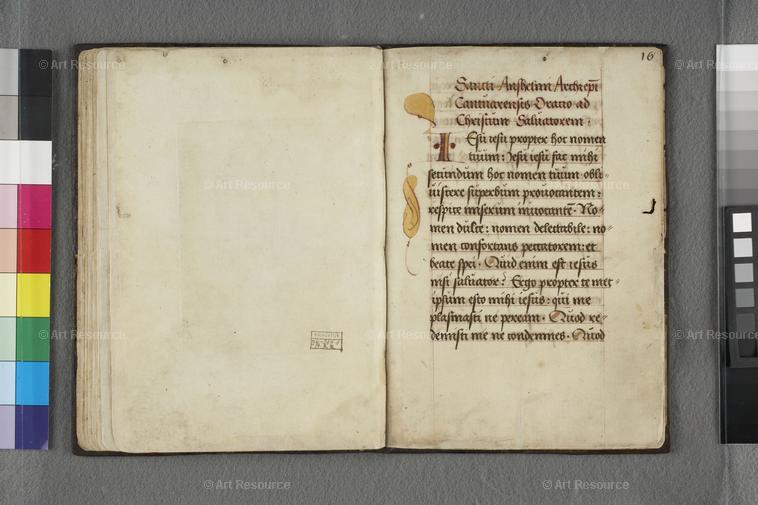 16
Sancti Anshelmi Archiepi
Cantuarensis Oratio ad
Christum Saluatorem :
Iesu iesu propter hoc nomen
tuum : Iesu iesu fac mihi
secundum hoc nomen tuum obli=
uiscere superbum prouocantem :
respice miserum inuocante. No=
men dulce : nomen delectabile : no=
men confortans peccatorem : et
beate spei. Quid enim est iesus
nisi saluator? Ergo propter te met=
ipsum esto mihi iesus : qui me
plasmasti ne peream. Quod re=
demisti me ne condemnes. Quod
© Art Resource
© Art Resource
© Art Resource
© Art Resource
© Art Resource
© Art Resource
© Art Resource
© Art Resource